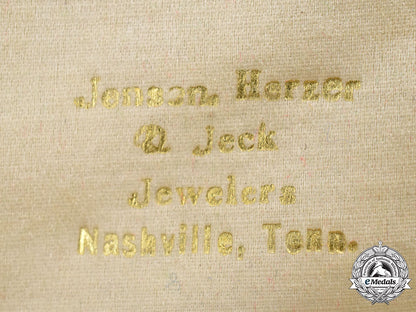 Jensen, Herzer
& Jeck
Jewelers
Nashville, Tenn.
eMedals